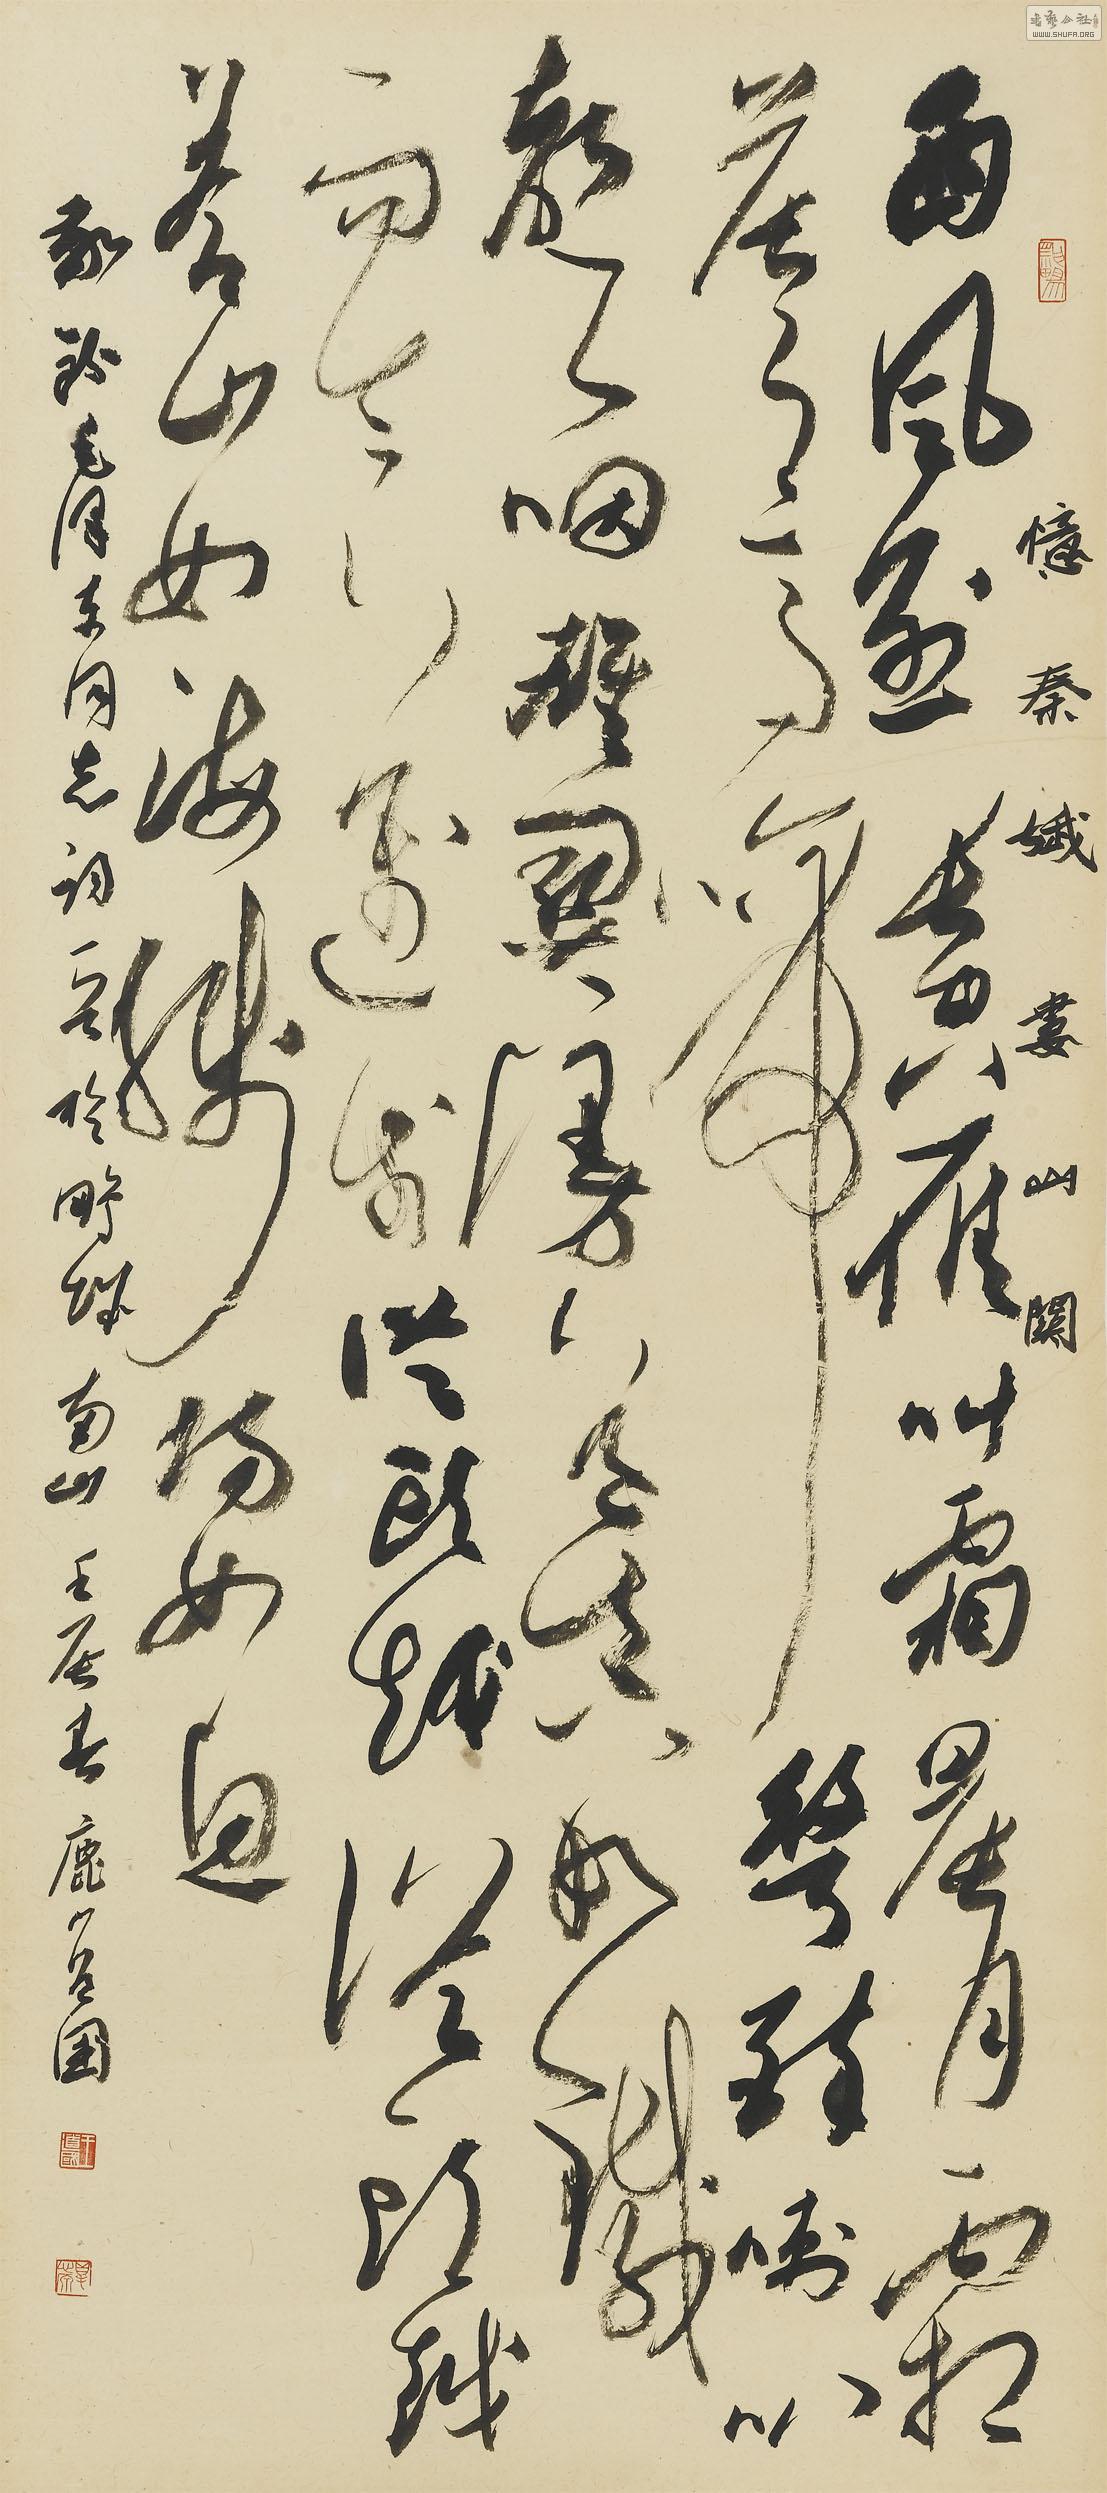 書藝公社
WWW.SHUFA.ORG
憶秦娥 婁山關
西風烈長空雁叫霜晨月霜
晨月馬蹄聲碎喇叭
聲咽雄關漫道真如鐵
而今邁步從頭越從頭越
蒼山如海殘陽如血
敬錄毛澤東同志詞一首於 南山壬辰春鹿